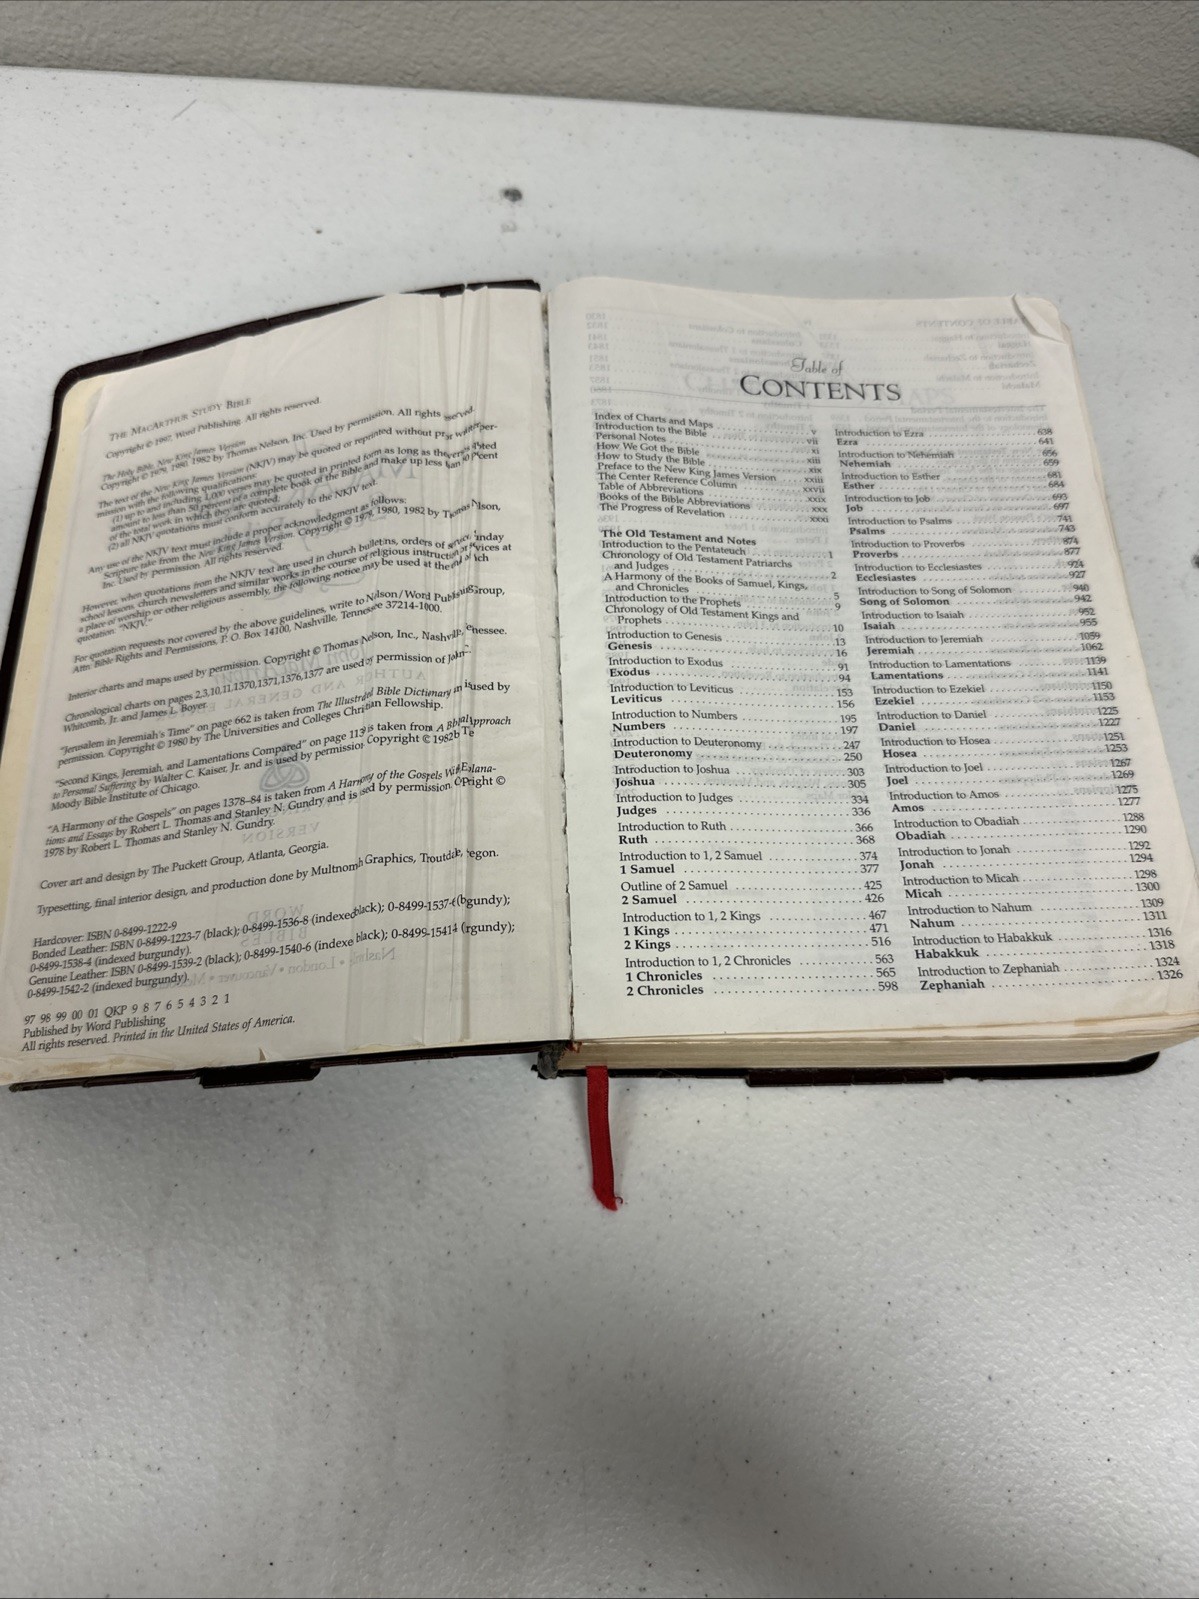 THE MACARTHUR STUDY BIBLE
Copyright © 1997, Word Publishing. All rights reserved.
The Holy Bible, New King James Version
Copyright © 1979, 1980, 1982 by Thomas Nelson, Inc. Used by permission. All rights served.
The text of the New King James Version (NKJV) may be quoted or reprinted without prior written per-
mission with the following qualifications:
(1) up to and including 1,000 verses may be quoted in printed form as long as the verses
amount to less than 50 percent of a complete book of the Bible and make up less than 50 percent
of the total work in which they are quoted.
(2) all NKJV quotations must conform accurately to the NKJV text.
Any use of the NKJV text must include a proper acknowledgment as follows:
Scripture take from the New King James Version. Copyright © 1979, 1980, 1982 by Thomas Nelson,
Inc. Used by permission. All rights reserved.
However, when quotations from the NKJV text are used in church bulletins, orders of service, unday
school lessons, church newsletters and similar works in the course of religious instruction services at
a place of worship or other religious assembly, the following notice may be used at the end of
quotation: "NKJV."
For quotation requests not covered by the above guidelines, write to Nelson/Word Group,
Attn: Bible Rights and Permissions, P. O. Box 14100, Nashville, Tennessee 37214-1000.
Interior charts and maps used by permission. Copyright © Thomas Nelson, Inc., Nashville, ennessee.
Chronological charts on pages 2,3,10,11,1370,1371,1376,1377 are used by permission of John
Whitcomb, Jr. and James L. Boyer.
"Jerusalem in Jeremiah's Time" on page 662 is taken from The Illustrated Bible Dictionary used by
permission. Copyright © 1980 by The Universities and Colleges Christian Fellowship.
"Second Kings, Jeremiah, and Lamentations Compared" on page 113 is taken from A Approach
to Personal Suffering by Walter C. Kaiser, Jr. and is used by permission Copyright © 1982
Moody Bible Institute of Chicago.
"A Harmony of the Gospels" on pages 1378–84 is taken from A Harmony of the Gospels
tions and Essays by Robert L. Thomas and Stanley N. Gundry and is used by permission. ©
1978 by Robert L. Thomas and Stanley N. Gundry.
Cover art and design by The Puckett Group, Atlanta, Georgia.
Typesetting, final interior design, and production done by Multnomah Graphics, Troutdale, egon.
Hardcover: ISBN 0-8499-1222-9
Bonded Leather: ISBN 0-8499-1223-7 (black); 0-8499-1536-8 (indexed black); 0-8499-1537-6
0-8499-1538-4 (indexed burgundy).
Genuine Leather: ISBN 0-8499-1539-2 (black); 0-8499-1540-6 (indexed black); 0-8499-1541-4
0-8499-1542-2 (indexed burgundy).
97 98 99 00 01 QKP 9 8 7 6 5 4 3 2 1
Published by Word Publishing
All rights reserved. Printed in the United States of America.
Table of
CONTENTS
Index of Charts and Maps v
Introduction to the Bible vii
Personal Notes xi
How We Got the Bible xiii
How to Study the Bible xix
Preface to the New King James Version xxiii
The Center Reference Column xxvii
Table of Abbreviations xxix
Books of the Bible Abbreviations xxx
The Progress of Revelation xxxi
The Old Testament and Notes
Introduction to the Pentateuch 1
Chronology of Old Testament Patriarchs
and Judges 2
A Harmony of the Books of Samuel, Kings,
and Chronicles 5
Introduction to the Prophets 9
Chronology of Old Testament Kings and
Prophets 10
Introduction to Genesis 13
Genesis 16
Introduction to Exodus 91
Exodus 94
Introduction to Leviticus 153
Leviticus 156
Introduction to Numbers 195
Numbers 197
Introduction to Deuteronomy 247
Deuteronomy 250
Introduction to Joshua 303
Joshua 305
Introduction to Judges 334
Judges 336
Introduction to Ruth 366
Ruth 368
Introduction to 1, 2 Samuel 374
1 Samuel 377
Outline of 2 Samuel 425
2 Samuel 426
Introduction to 1, 2 Kings 467
1 Kings 471
2 Kings 516
Introduction to 1, 2 Chronicles 563
1 Chronicles 565
2 Chronicles 598
Introduction to Ezra 638
Ezra 641
Introduction to Nehemiah 656
Nehemiah 659
Introduction to Esther 681
Esther 684
Introduction to Job 693
Job 697
Introduction to Psalms 741
Psalms 743
Introduction to Proverbs 874
Proverbs 877
Introduction to Ecclesiastes 924
Ecclesiastes 927
Introduction to Song of Solomon 940
Song of Solomon 942
Introduction to Isaiah 952
Isaiah 955
Introduction to Jeremiah 1059
Jeremiah 1062
Introduction to Lamentations 1139
Lamentations 1141
Introduction to Ezekiel 1150
Ezekiel 1153
Introduction to Daniel 1225
Daniel 1227
Introduction to Hosea 1251
Hosea 1253
Introduction to Joel 1267
Joel 1269
Introduction to Amos 1275
Amos 1277
Introduction to Obadiah 1288
Obadiah 1290
Introduction to Jonah 1292
Jonah 1294
Introduction to Micah 1298
Micah 1300
Introduction to Nahum 1309
Nahum 1311
Introduction to Habakkuk 1316
Habakkuk 1318
Introduction to Zephaniah 1324
Zephaniah 1326